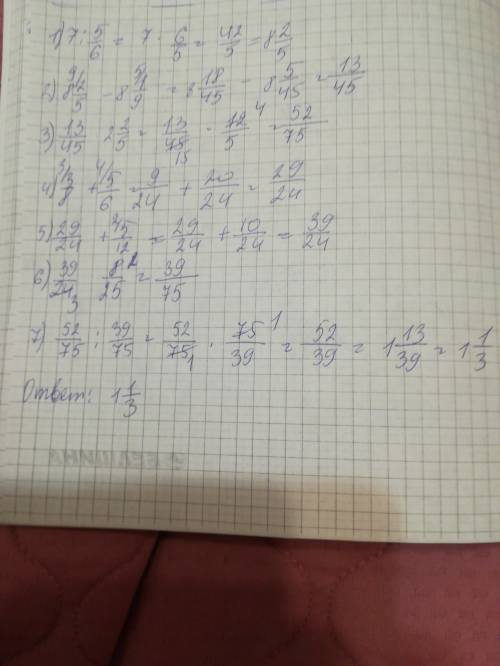 1) 7 : 5/6 = 7 · 6/5 = 42/5 = 8 2/5
2) 8 2/5 - 8 1/9 = 8 18/45 - 8 5/45 = 13/45
3) 13/45 · 2 2/5 = 13/45 · 12/5 = 52/75
4) 3/8 + 5/6 = 9/24 + 20/24 = 29/24
5) 29/24 + 5/12 = 29/24 + 10/24 = 39/24
6) 39/24 · 8/25 = 39/75
7) 52/75 : 39/75 = 52/75 · 75/39 = 52/39 = 1 13/39 = 1 1/3
Ответ: 1 1/3